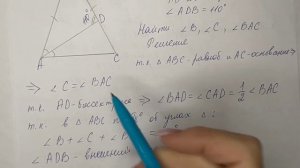 ∠ADB = 110°
Найти ∠B, ∠C, ∠BAC
Решение
D
т.к. △ABC - равноб и AC-основание ⇒
A
C
⇒ ∠C = ∠BAC
т.к. AD-биссектриса ⇒ ∠BAD = ∠CAD = 1/2 ∠BAC
т.к. в об углах △:
∠B + ∠C +
∠ADB = внешний